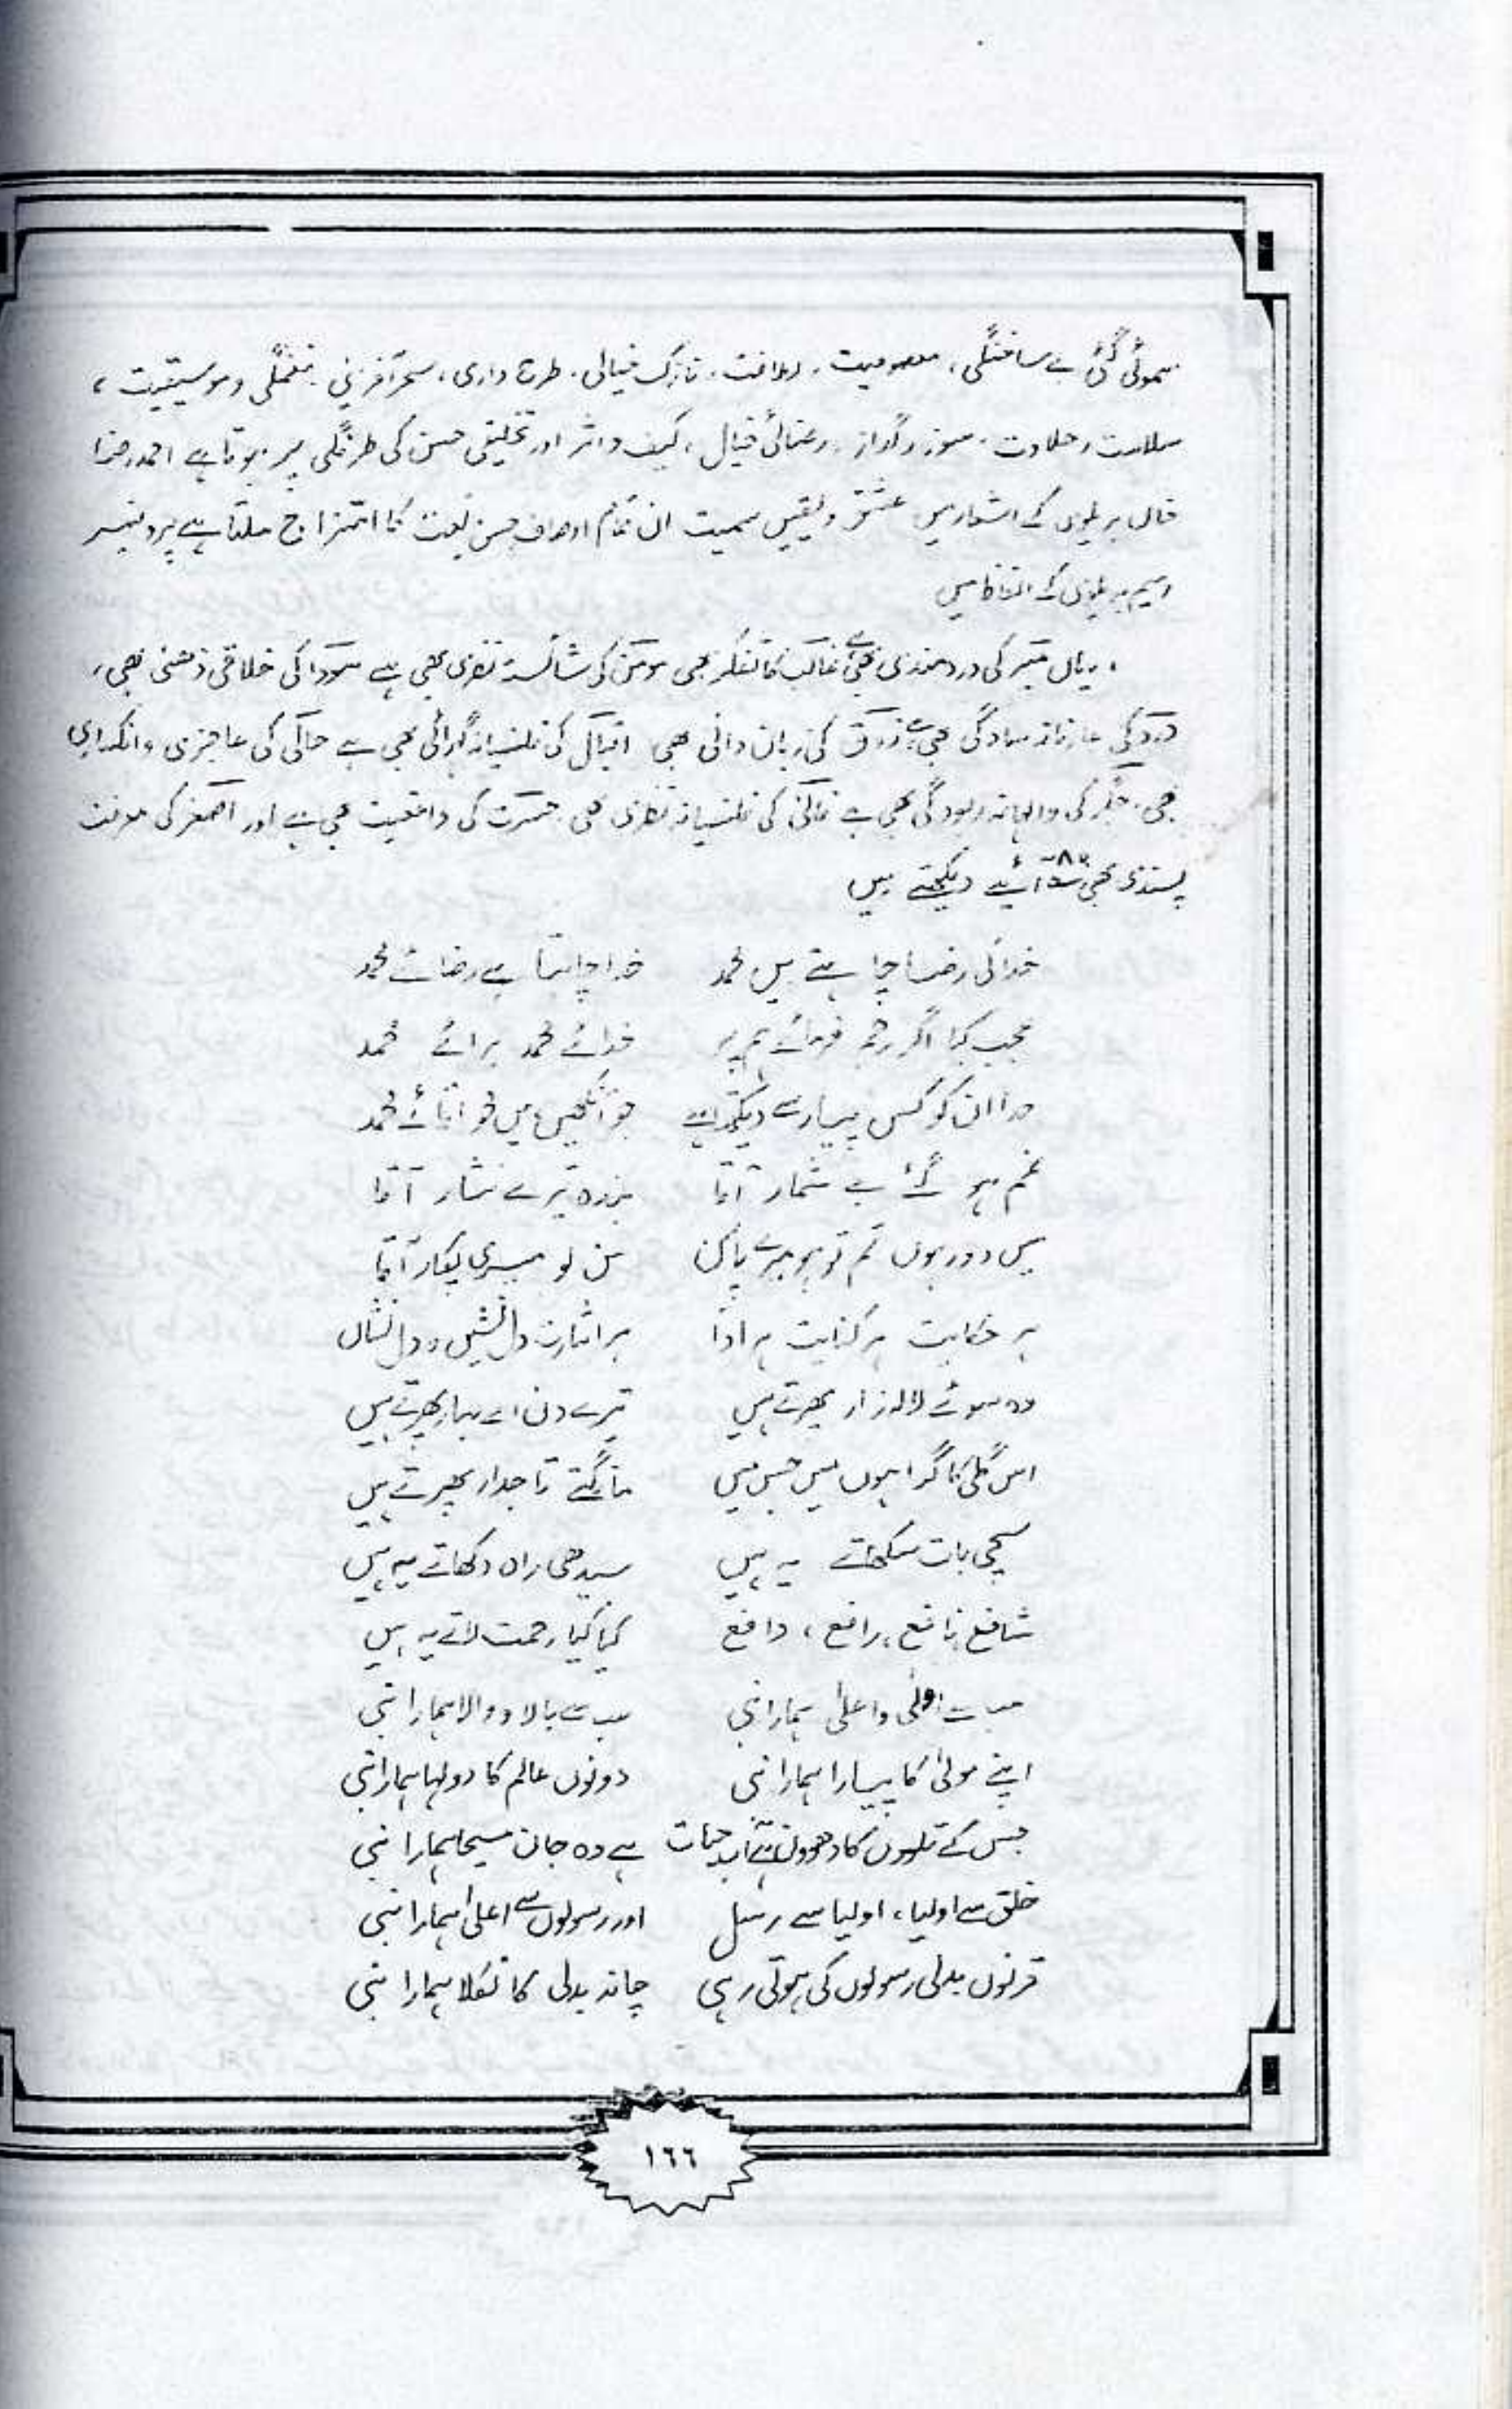 سموئی گئی بے ساختگی، معصومیت، لطافت، نازک خیالی، طرح داری، سحر آفرینی، نغمگی و موسیقیت،
سلاست و حلاوت، سوز و گداز، رعنائی خیال، کیف و اثر اور تخلیقی حسن کی طرفگی پر ہوتا ہے احمد رضا
خاں بریلوی کے اشعار میں عشق و یقیں سمیت ان تمام اوصاف حسن نعت کا امتزاج ملتا ہے پروفیسر
وسیم بریلوی کے الفاظ میں
، یہاں میر کی دردمندی بھی ہے غالب کا تفکر بھی مومن کی شائستہ نظری بھی ہے سودا کی خلاقی ذہنی بھی،
درد کی عارفانہ سادگی بھی ہے ذوق کی زبان دانی بھی اقبال کی فلسفیانہ گہرائی بھی ہے حالی کی عاجزی و انکساری
بھی، جگر کی والہانہ ربودگی بھی ہے فانی کی فلسفیانہ نظری بھی، حسرت کی واقعیت بھی ہے اور اصغر کی معرفت
پسندی بھی آئیے دیکھتے ہیں
خدا کی رضا چاہتے ہیں محمد خدا چاہتا ہے رضائے محمد
عجب کیا اگر رحم فرمائے ہم پر خدائے محمد برائے محمد
خدا ان کو کس پیار سے دیکھتا ہے جو آنکھیں ہیں محو لقائے محمد
غم ہو گئے بے شمار آقا بندہ تیرے نثار آقا
میں دور ہوں تم تو ہو میرے پاس سن لو میری پکار آقا
ہر حکایت ہر کنایت ہر ادا ہر اشارت دل نشیں و دل نشاں
وہ سوئے لالہ زار پھرتے ہیں تیرے دن اے بہار پھرتے ہیں
اس گلی کا گدا ہوں میں جس میں مانگتے تاجدار پھرتے ہیں
سچی بات سکھاتے یہ ہیں سیدھی راہ دکھاتے یہ ہیں
شافع نافع، رافع، دافع کیا کیا رحمت لاتے یہ ہیں
سب سے اولٰی و اعلٰی ہمارا نبی سب سے بالا و والا ہمارا نبی
اپنے مولٰی کا پیارا ہمارا نبی دونوں عالم کا دولہا ہمارا نبی
جس کے تلووں کا دھوون ہے آب حیات ہے وہ جان مسیحا ہمارا نبی
خلق سے اولیا، اولیا سے رسل اور رسولوں سے اعلٰی ہمارا نبی
قرنوں بدلی رسولوں کی ہوتی رہی چاند بدلی کا نکلا ہمارا نبی
١٦٦